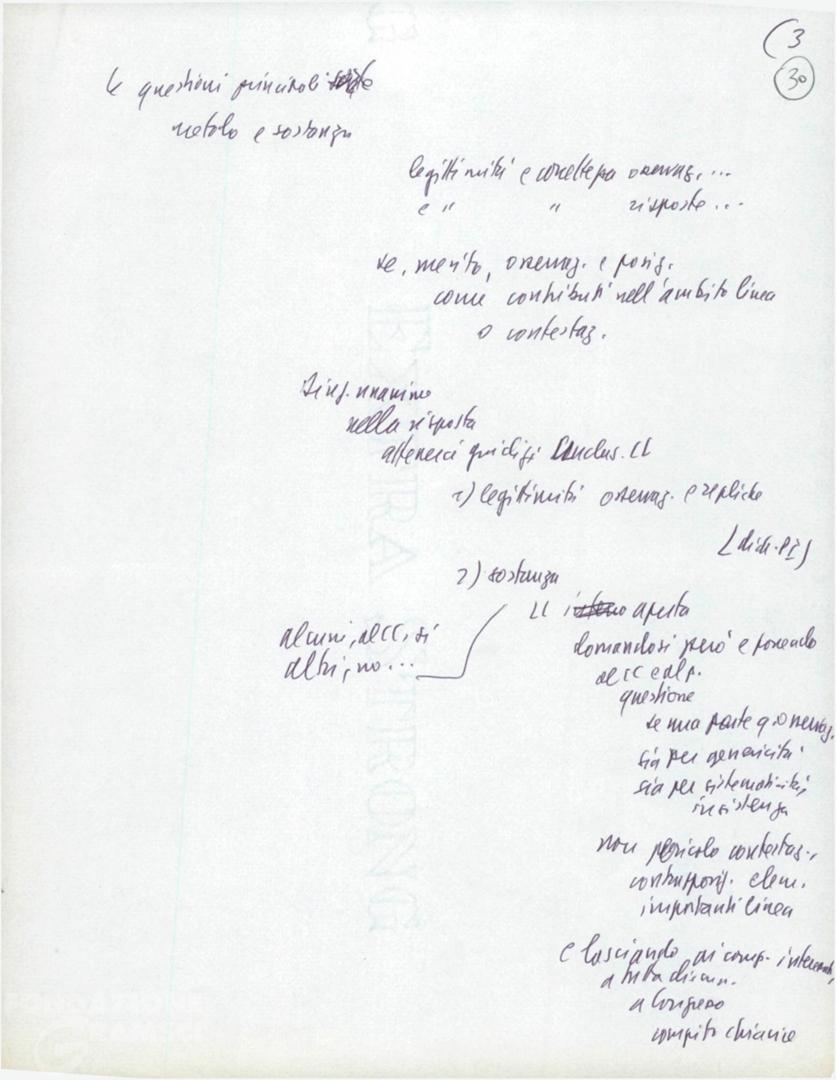 (3
30
le questioni principali
metodo e sostanza
legittimità e correttezza osservaz. ...
e " " risposte ...
se, merito, osservaz. e posiz.
come contributi nell'ambito linea
o contestaz.
unanime
nella risposta
attenerci giudizi conclus. CC
1) legittimità osservaz. e repliche
2) sostanza
aperta
alcuni, al CC, sì
altri, no ...
domandosi però e ponendo
al CC e al p.
questione
se una parte q. osservaz.
sia per genericità
sia per sistematicità,
insistenza
non pericolo contestaz.,
contrappos. elem.
importanti linea
e lasciando ai comp. interessati,
a tutta discuss.
a Congresso
compito chiarire
EXTRA STRONG